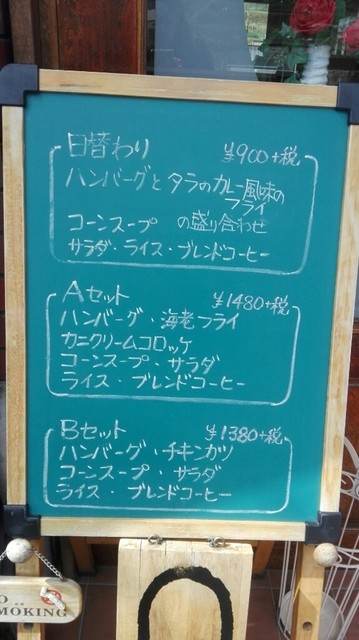 日替わり ¥900+税
ハンバーグと タラのカレー風味の
フライ
コーンスープ の盛り合わせ
サラダ・ライス・ブレンドコーヒー
Aセット ¥1480+税
ハンバーグ・海老フライ
カニクリームコロッケ
コーンスープ・サラダ
ライス・ブレンドコーヒー
Bセット ¥1380+税
ハンバーグ・チキンカツ
コーンスープ・サラダ
ライス・ブレンドコーヒー
MOKING